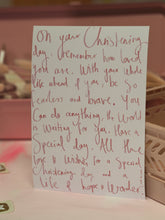 On your Christening
day, remember how loved
you are. With your whole
life ahead of you, be so
fearless and brave. You
can do anything, the world
is waiting for you. Have a
special day. All the
love & wishes for a special
Christening day and a
life of hope & wonder